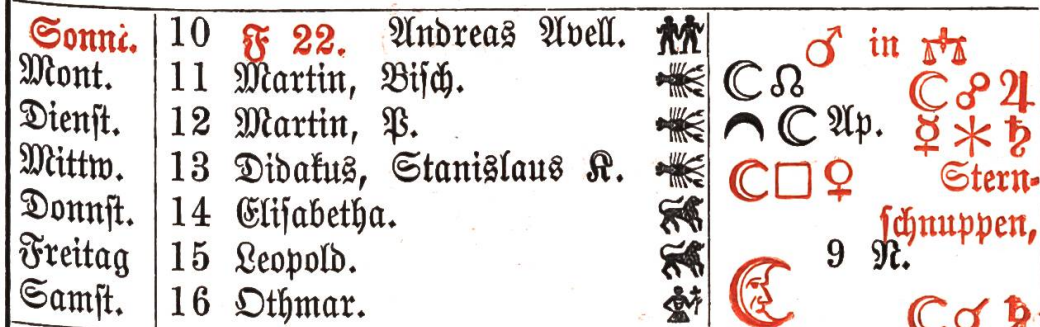 Sonnt. 10 F 22. Andreas Avell. ♂ in ♎
Mont. 11 Martin, Bisch. ☾ ☊ ☾ ☍ ♃
Dienst. 12 Martin, P. ☾ Ap. ☿ ⚹ ♄
Mittw. 13 Didakus, Stanislaus K. ☾ □ ♀ Stern-
Donnst. 14 Elisabetha. schnuppen,
Freitag 15 Leopold. 9 N.
Samst. 16 Othmar. ☾ ☌ ♄